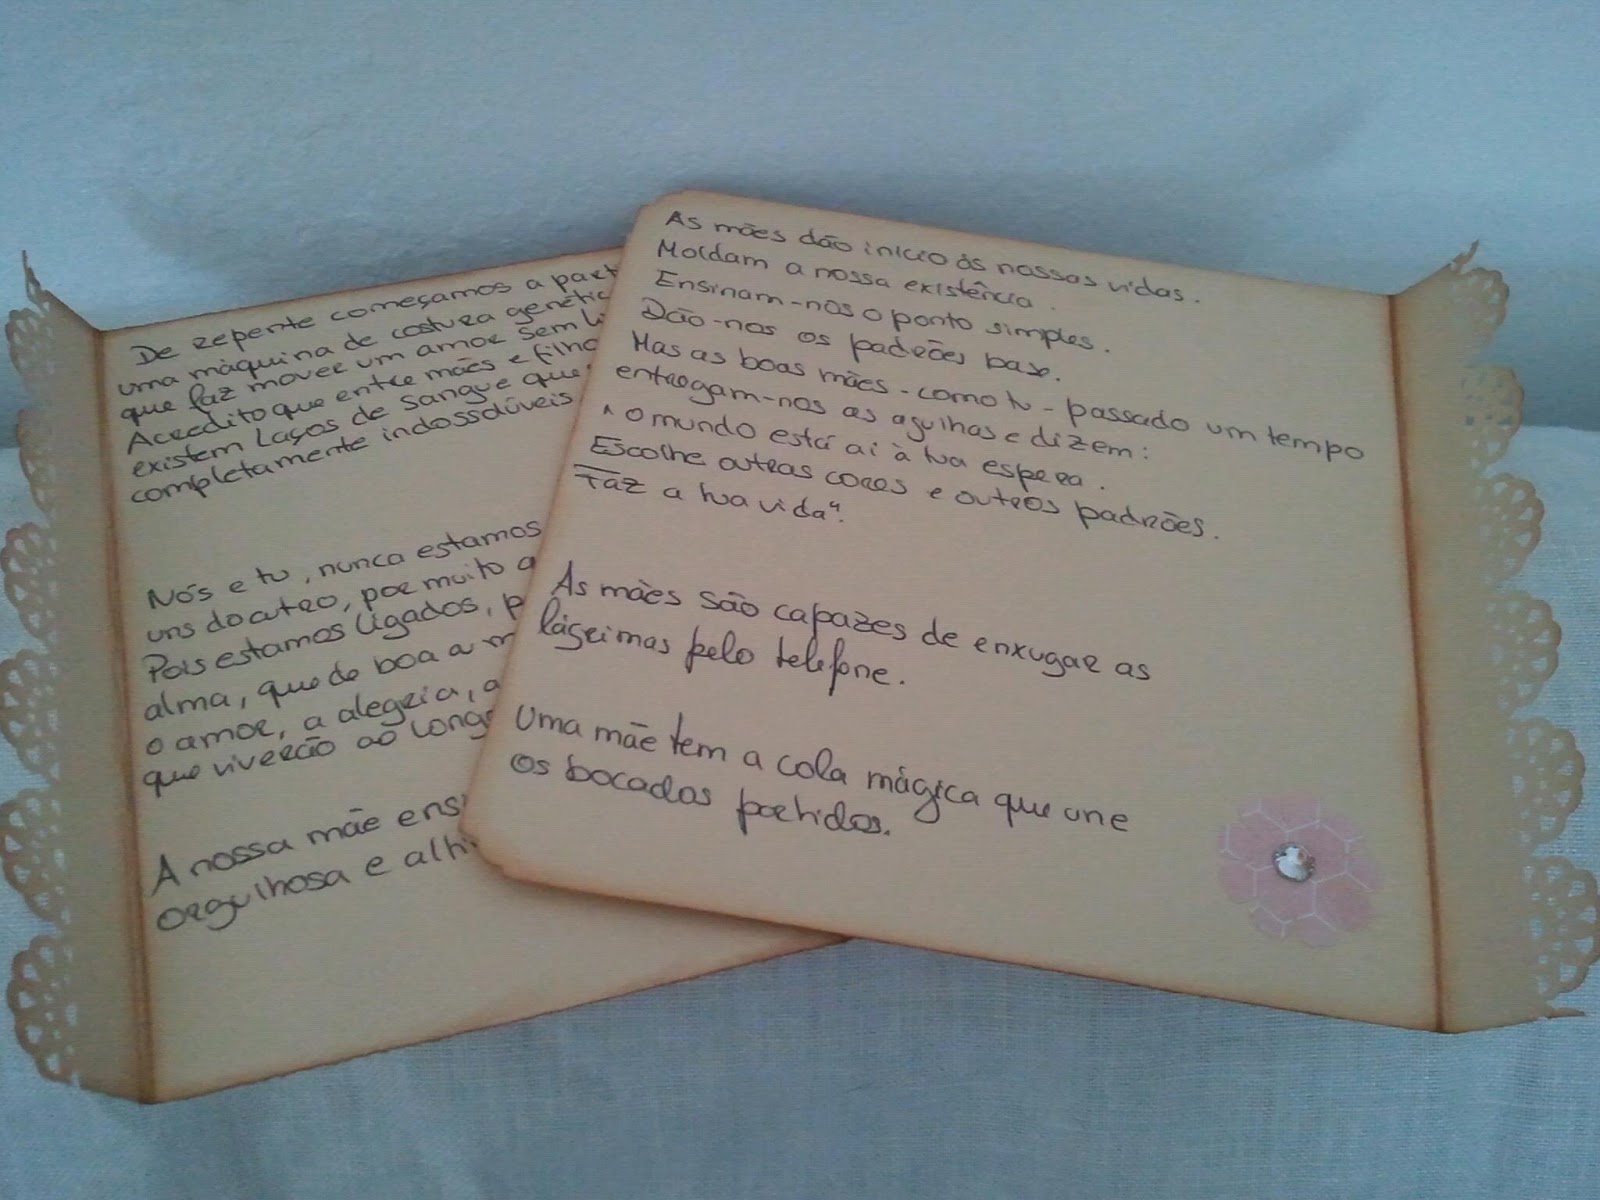 De repente começamos a
uma máquina de costura
que faz mover um amor sem
Acredito que entre mães e
existem laços de sangue que
completamente indossolúveis
Nós e tu, nunca estamos
uns do outro, por muito
Pois estamos ligados,
alma, que de boa a
o amor, a alegria,
que viverão ao
A nossa mãe
orgulhosa e
As mães dão início ás nossas vidas.
Moldam a nossa existência.
Ensinam-nos o ponto simples.
Dão-nos os padrões base.
Mas as boas mães - como tu - passado um tempo
entregam-nos as agulhas e dizem:
"o mundo está ai à tua espera.
Escolhe outras cores e outros padrões.
Faz a tua vida".
As mães são capazes de enxugar as
lágrimas pelo telefone.
Uma mãe tem a cola mágica que une
os bocados partidos.